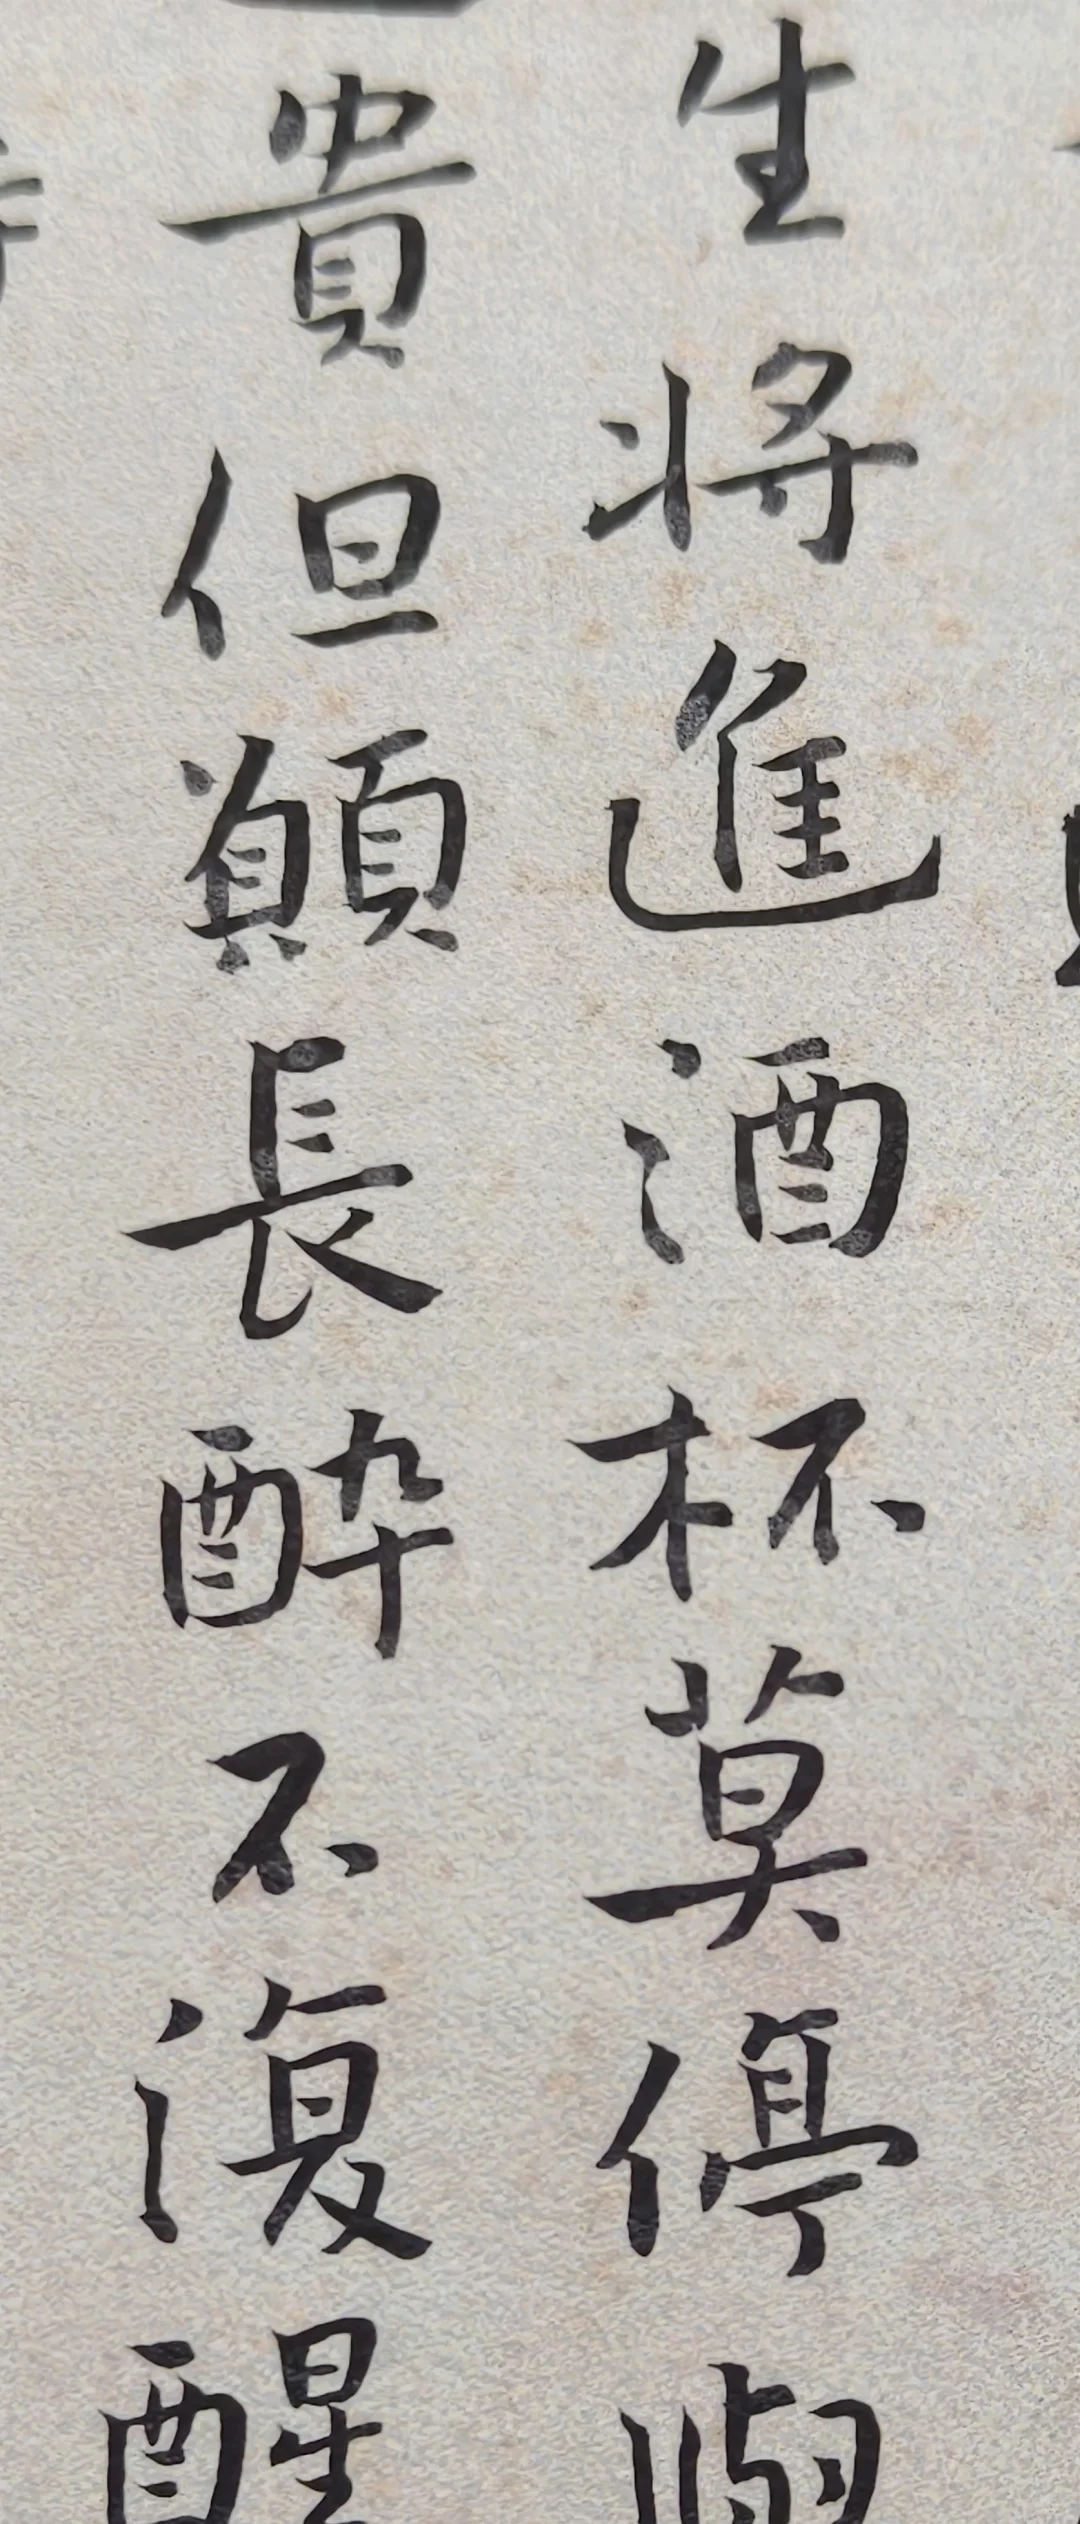 生將進酒杯莫停與
貴但願長醉不復醒